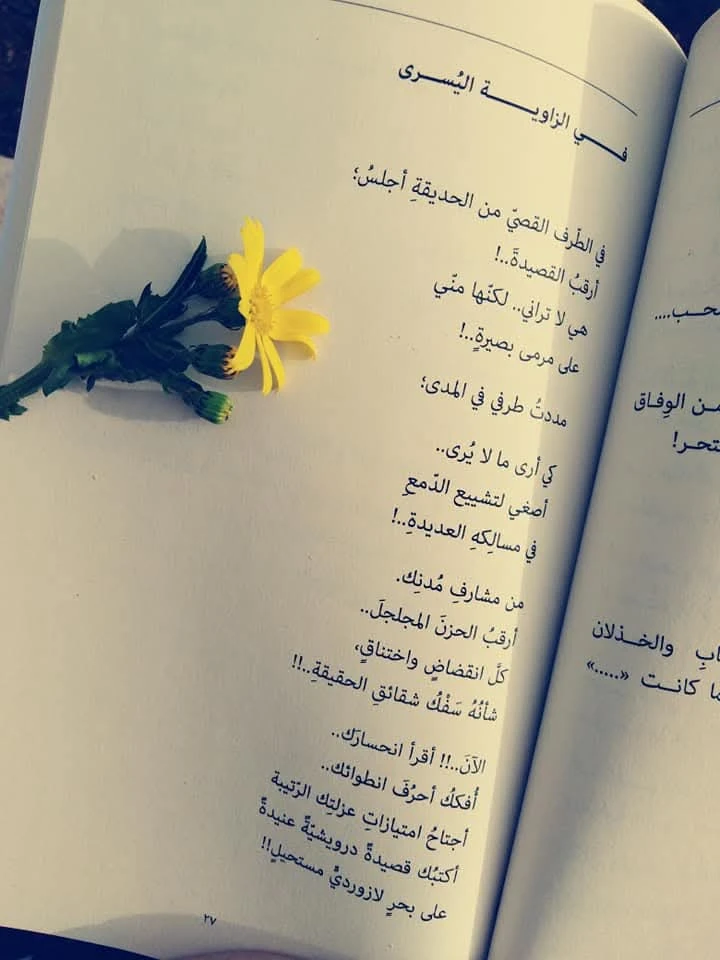 في الزاوية اليُسرى
في الطّرف القصيّ من الحديقةِ أجلسُ؛
أرقبُ القصيدةَ..!
هي لا تراني.. لكنّها منّي
على مرمى بصيرةٍ..!
مددتُ طرفي في المدى؛
كي أرى ما لا يُرى..
أصغي لتشييع الدّمعِ
في مسالِكهِ العديدةِ..!
من مشارفِ مُدنِك.
أرقبُ الحزنَ المجلجلَ..
كلَّ انقضاضٍ واختناقٍ،
شأنُهُ سَفْكُ شقائقِ الحقيقةِ..!!
الآنَ..!! أقرأ انحسارَك..
أُفككُ أحرُفَ انطوائك..
أجتاحُ امتيازاتِ عزلتِك الرّتيبة
أكتبُك قصيدةً درويشيّةً عنيدةً
على بحرٍ لازورديٍّ مستحيلٍ!!
٢٧
من الوِفاق
والخذلان
ما كانت «.....»